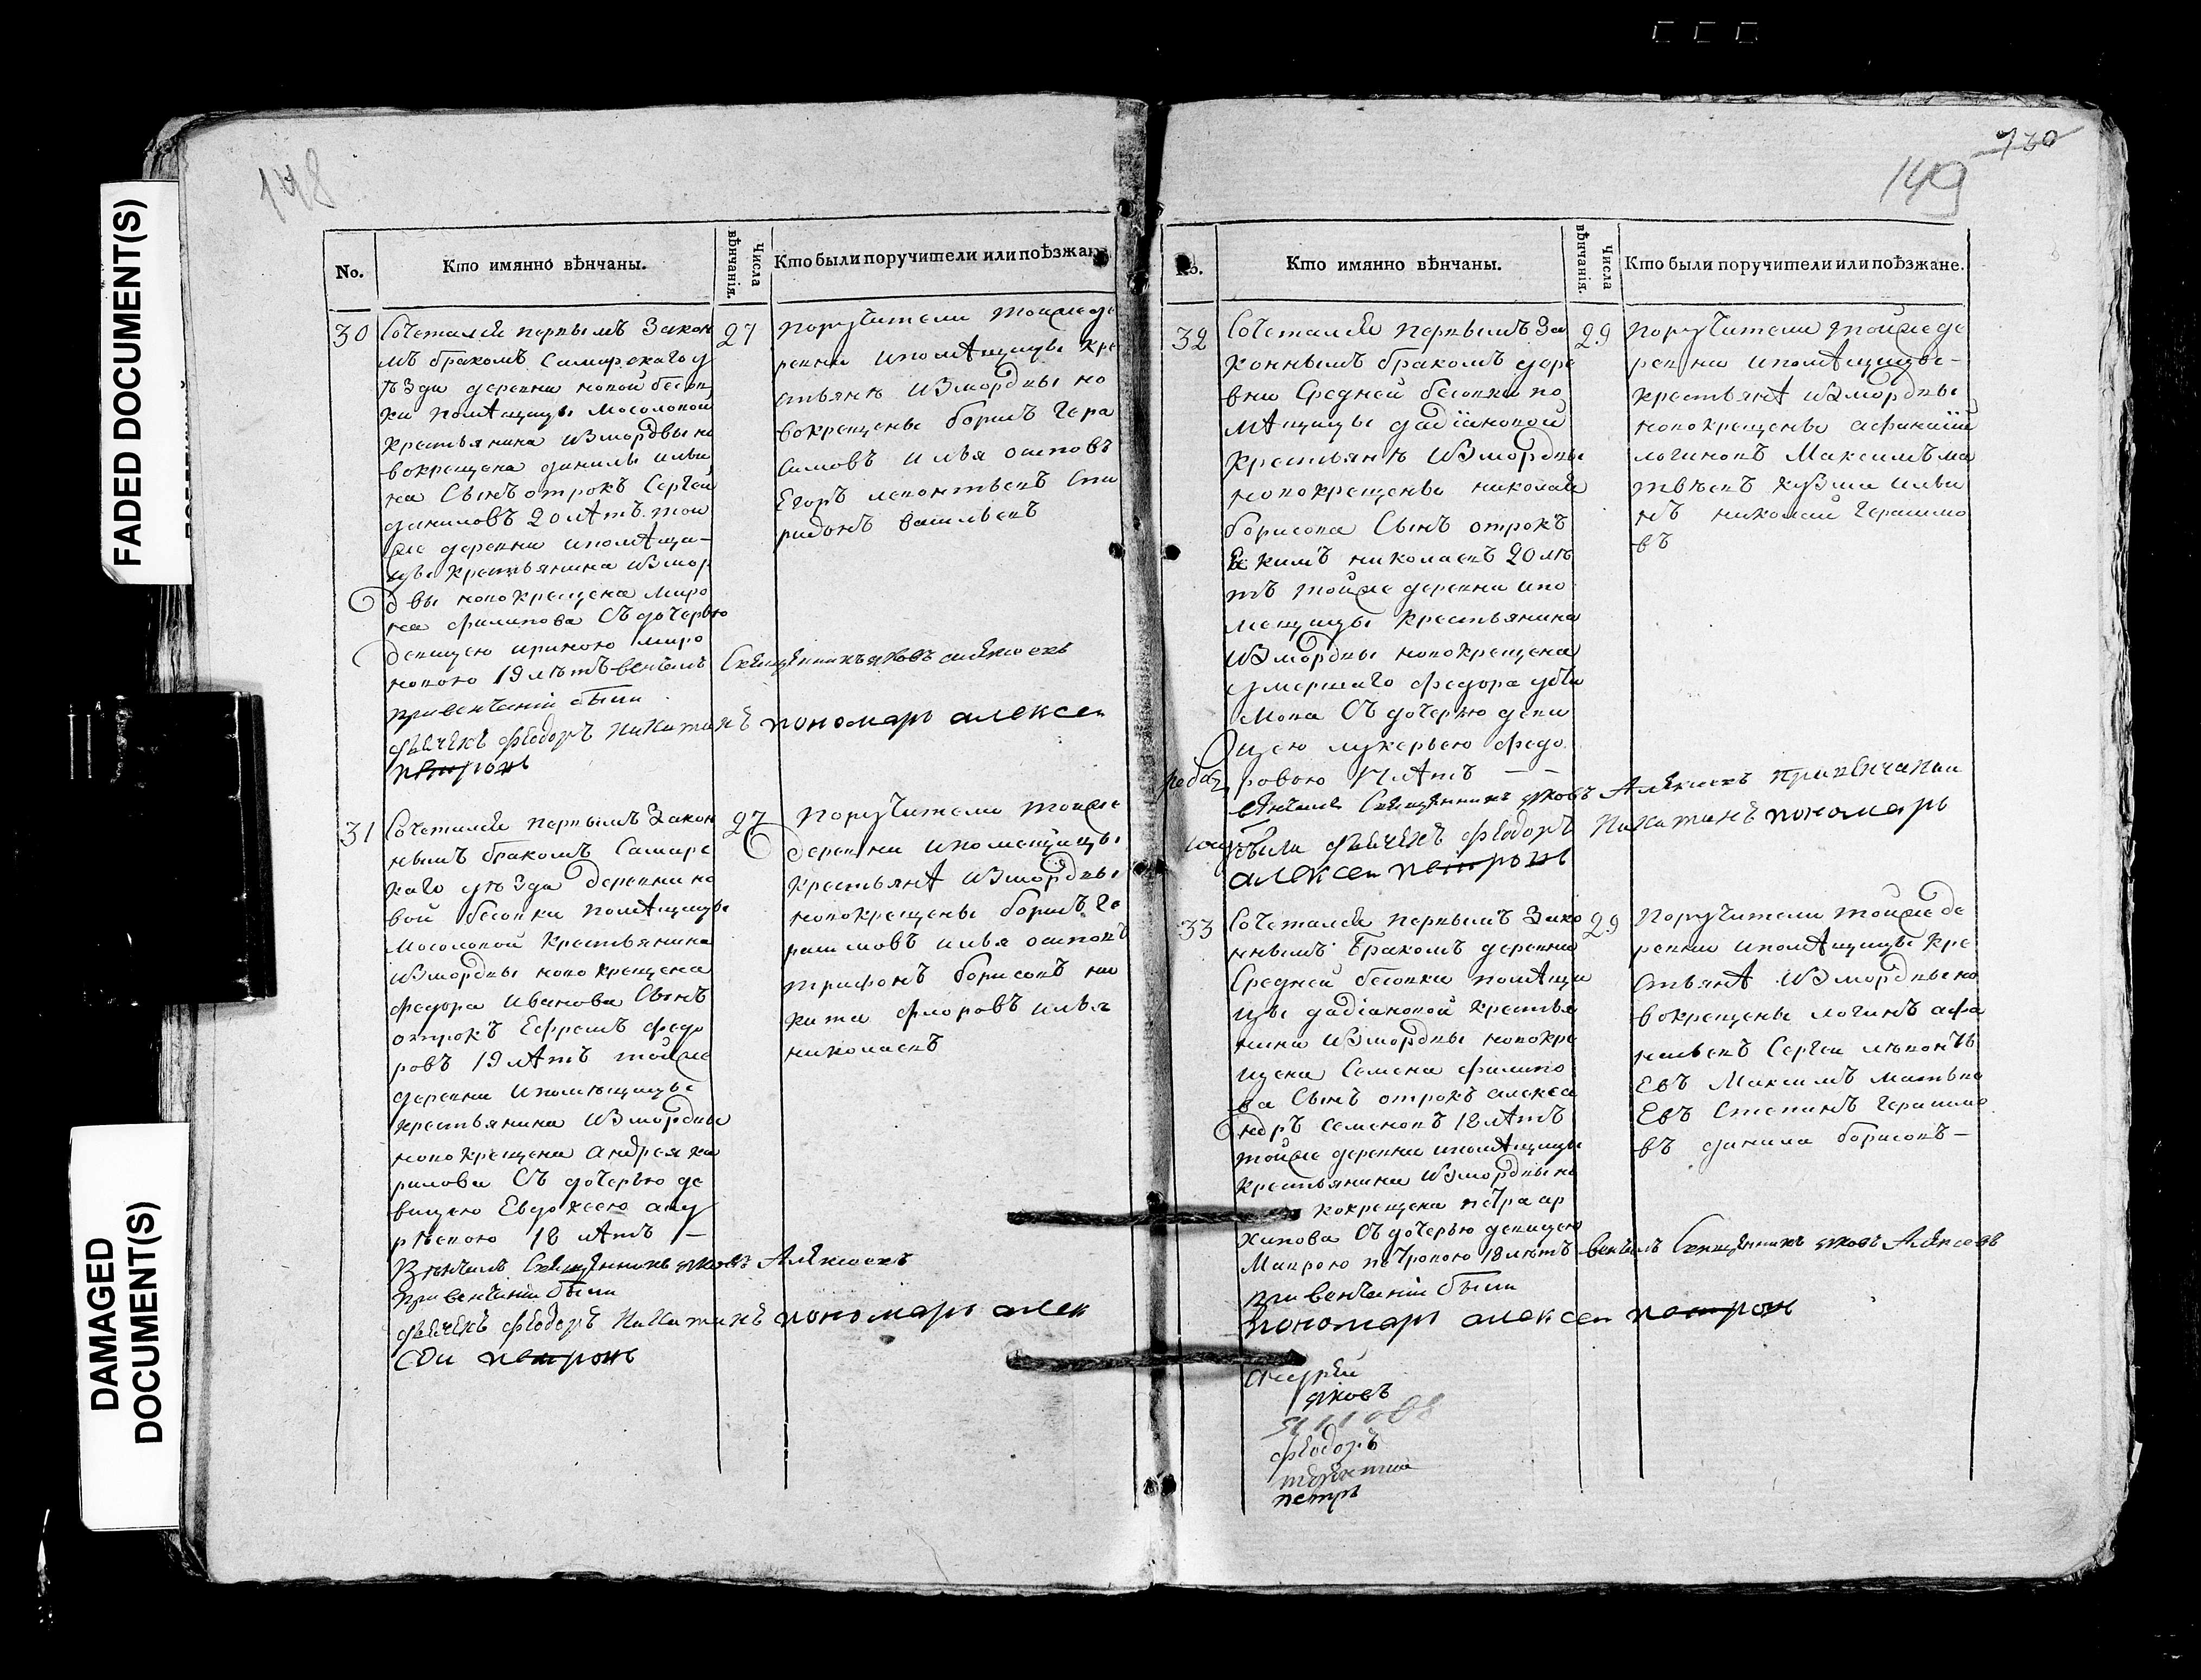 FADED DOCUMENT(S)
DAMAGED
DOCUMENT(S)
148
No.
Кто имянно вѣнчаны.
Числа
вѣнчанія.
Кто были поручители или поѣзжане
30
Сочетался первымъ закон
мъ бракомъ Самарскаго у
ѣзда деревни новой бесов
ки помѣщицы Мосоловой
крестьянина измордвы но
вокрещена данилы ильи
на Сынъ отрокъ Сергей
даниловъ 20 лѣтъ той
же деревни ипомѣщи
цы крестьянина измор
двы новокрещена миро
на филипова Съ дочерью
девицею ириною миро
новою 19 лѣтъ венчалъ Священникъ яковъ алексеевъ
привенчании были
дьячекъ феодоръ никитинъ пономарь алексеи
петровъ
27
поручители тойже де
ревни ипомѣщицы кре
стьянѣ измордвы но
вокрещены борисъ гера
симовъ илья осиповъ
Егоръ леонтьевъ Спи
ридонъ васильевъ
31
Сочетался первымъ закон
нымъ бракомъ Самарс
каго уѣзда деревни но
вой бесовки помѣщицы
Мосоловой крестьянина
измордвы новокрещена
федора иванова Сынъ
отрокъ Ефремъ федо
ровъ 19 лѣтъ тойже
деревни ипомѣщицы
крестьянина измордвы
новокрещена андрея ки
рилова Съ дочерью де
вицею Евдокеею анд
рѣевою 18 лѣтъ
Вѣнчалъ Священникъ яковъ Алексеевъ
привенчании были
дьячекъ феодоръ никитинъ пономарь алек
сеи петровъ
27
поручители тойже
деревни ипомещицы
крестьянѣ измордвы
новокрещены борисъ ге
расимовъ илья осиповъ
трифонъ борисовъ ни
кита флоровъ илья
николаевъ
130
149
No.
Кто имянно вѣнчаны.
Числа
вѣнчанія.
Кто были поручители или поѣзжане.
32
Сочетался первымъ за
коннымъ бракомъ дере
вни Средней бесовки по
мѣщицы дадіановой
крестьянѣ измордвы
новокрещены николая
борисова Сынъ отрокъ
Екимъ николаевъ 20 лѣ
тъ тойже деревни ипо
мещицы крестьянина
измордвы новокрещена
умершаго федора
Съ дочерью деви
цею лукерьею федо
ровою 17 лѣтъ
венчалъ Священникъ яковъ Алексеевъ привенчании
были дьячекъ феодоръ никитинъ пономарь
алексеи петровъ
29
поручители тойже де
ревни ипомѣщицы
крестьянѣ измордвы
новокрещены афанасии
логиновъ Максимъ ма
твѣевъ кузма ильи
нъ николай герасимо
въ
33
Сочетался первымъ зако
ннымъ бракомъ деревни
Средней бесовки помѣщи
цы дадіановой крестья
нина измордвы новокре
щена Семена филипо
ва Сынъ отрокъ алекса
ндръ семеновъ 18 лѣтъ
тойже деревни ипомѣщицы
крестьянина измордвы но
вокрещена петра ар
хипова Съ дочерью девицею
Маврою петровою 18 лѣтъ венчалъ Священникъ яковъ Алексеевъ
привенчании были
пономарь алексеи петровъ
29
поручители тойже де
ревни ипомѣщицы кре
стьянѣ измордвы но
вокрещены логинъ афа
насьевъ Сергеи леонть
Евъ Максимъ матвѣ
Евъ Степанъ герасимо
въ данила борисовъ
яковъ
феодоръ
петръ